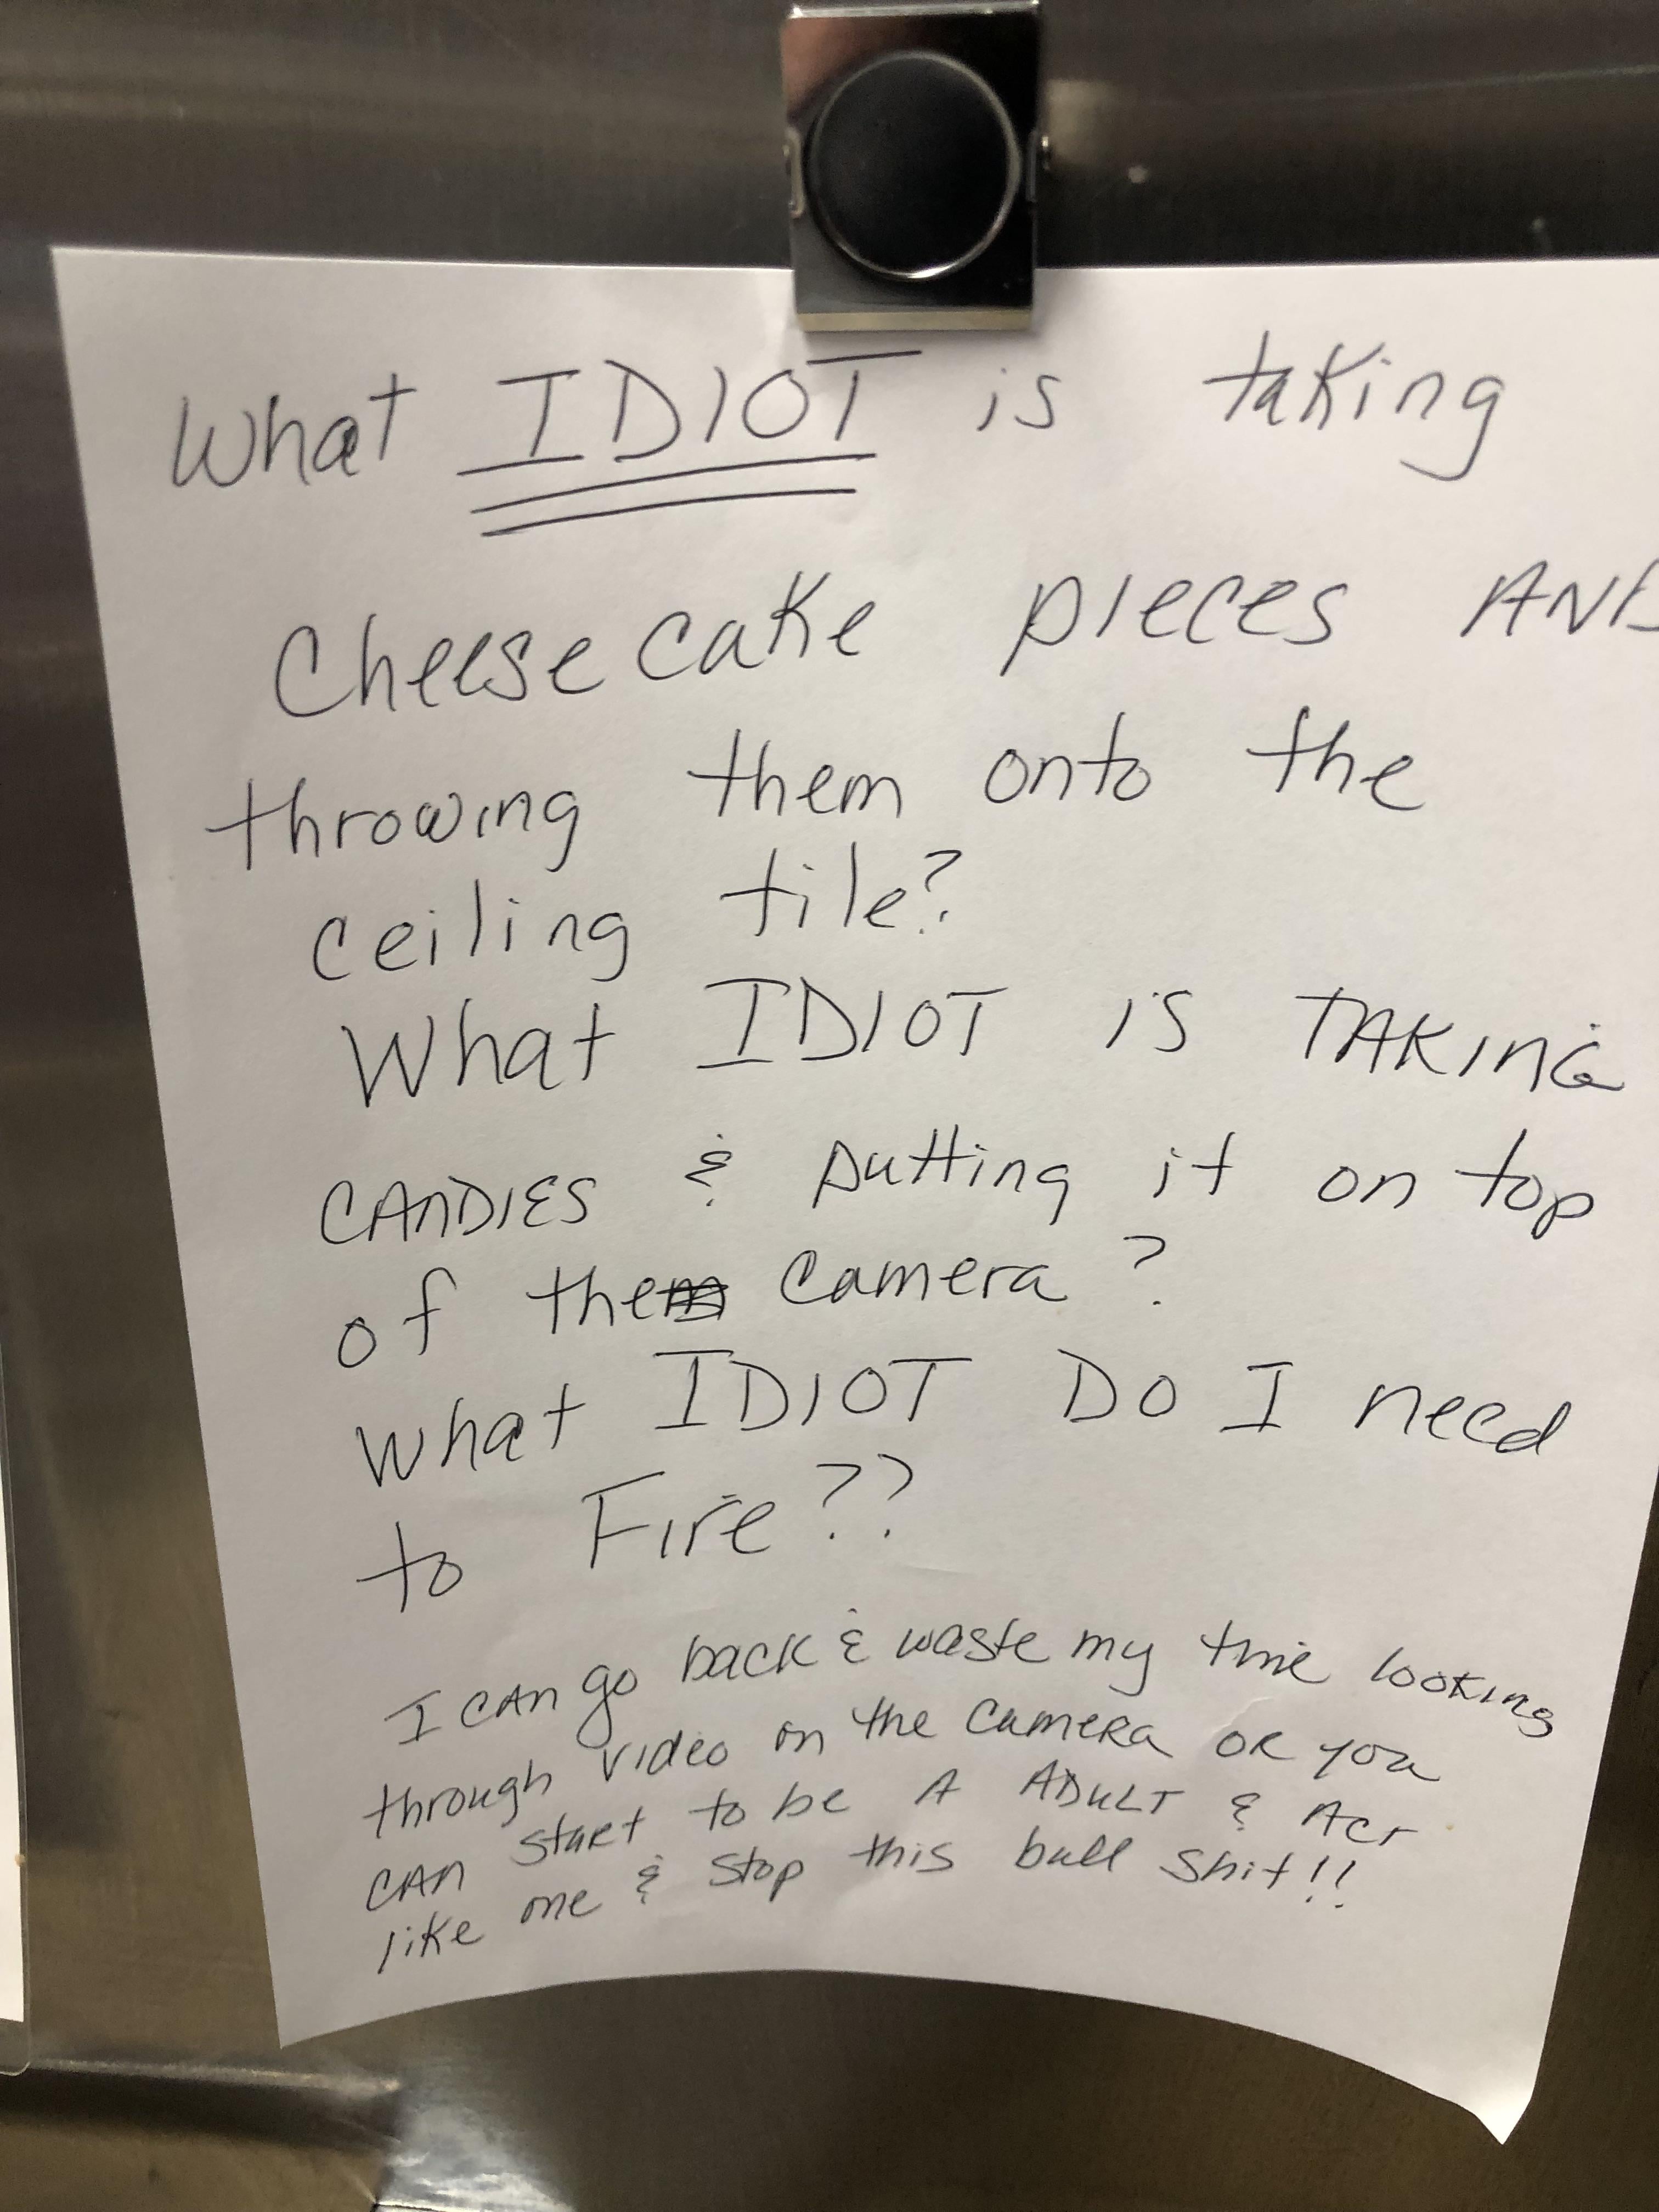 What IDIOT is taking
Cheese cake pieces AND
throwing them onto the
ceiling tile?
What IDIOT is TAKING
CANDIES & putting it on top
of the camera?
What IDIOT DO I need
to Fire??
I CAN go back & waste my time looking
through video on the CAMERA OR you
CAN START to be A ADULT & Act
like one & Stop this bull Shit!!